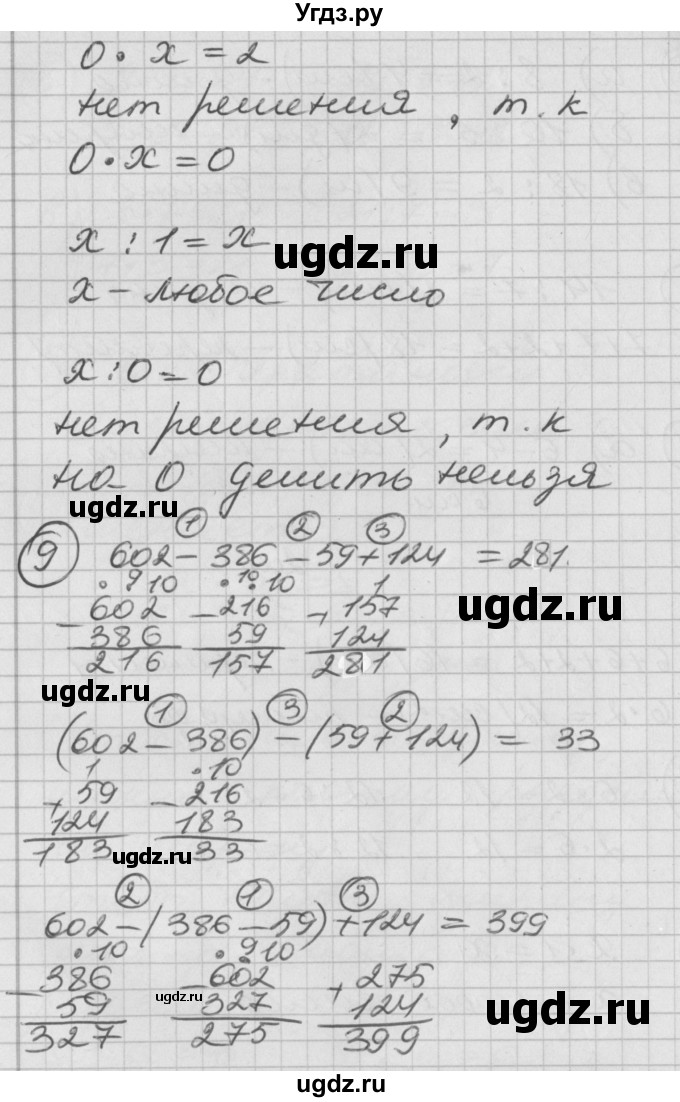 Угдз.ру
0 · x = 2
нет решения, т. к
0 · x = 0
x : 1 = x
ugdz.ru
x - любое число
x : 0 = 0
нет решения, т. к
на 0 делить нельзя
ugdz.ru
1 2 3
9 602 - 386 - 59 + 124 = 281.
· 9 10 · 10 · 10 1
- 602 - 216 + 157
ugdz.ru
386 59 124
216 157 281
ugdz.ru
1 3 2
(602 - 386) - (59 + 124) = 33
1 · 10
+ 59 - 216
124 183
183 33
ugdz.ru
2 1 3
602 - (386 - 59) + 124 = 399
· 10 · 9 10
- 386 - 602 + 275
59 327 124
ugdz.ru
ugdz.ru
327 275 399
ugdz.ru